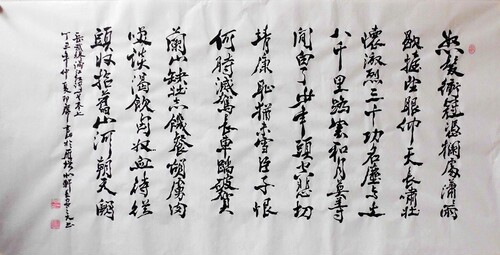 怒髮衝冠憑欄處瀟雨
歇抬望眼仰天長嘯壯
懷激烈三十功名塵與土
八千里路雲和月莫等
閒白了少年頭空悲切
靖康恥猶未雪臣子恨
何時滅駕長車踏破賀
蘭山缺壯志饑餐胡虜肉
笑談渴飲匈奴血待從
頭收拾舊山河朝天闕
岳武穆滿江紅
年仲夏